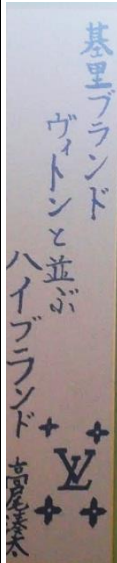 基里ブランド
ヴィトンと並ぶ
ハイブランド
高尾湊太
LV